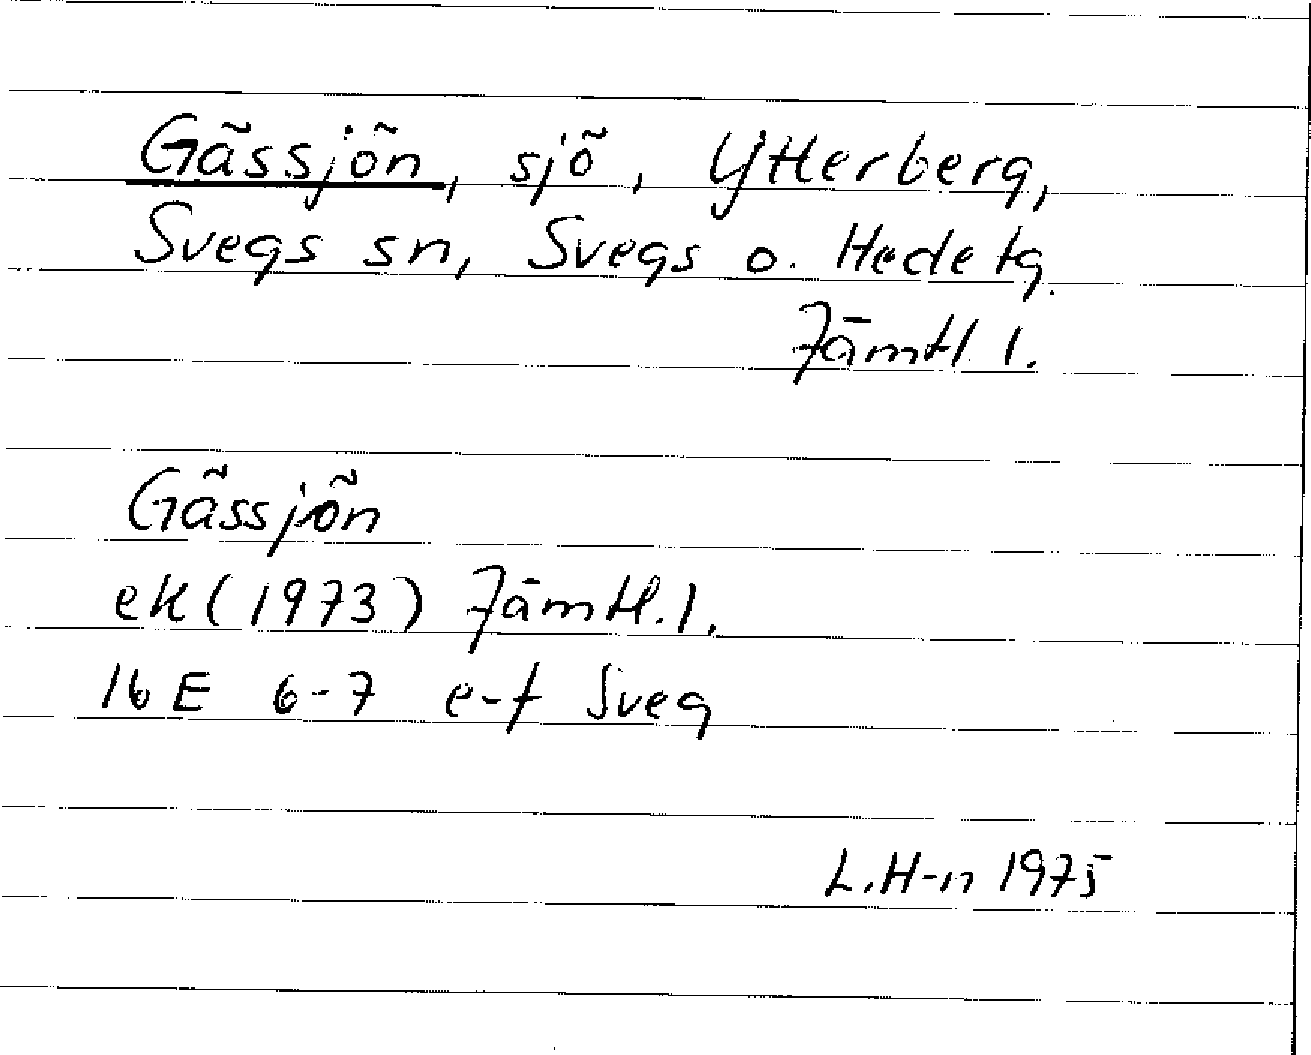 Gässjön, sjö, Ytterberg,
Svegs sn, Svegs o. Hede tg.
Jämtl l.
Gässjön
ek (1973) Jämtl. l.
16 E 6-7 e-f Sveg
L.H-n 1975